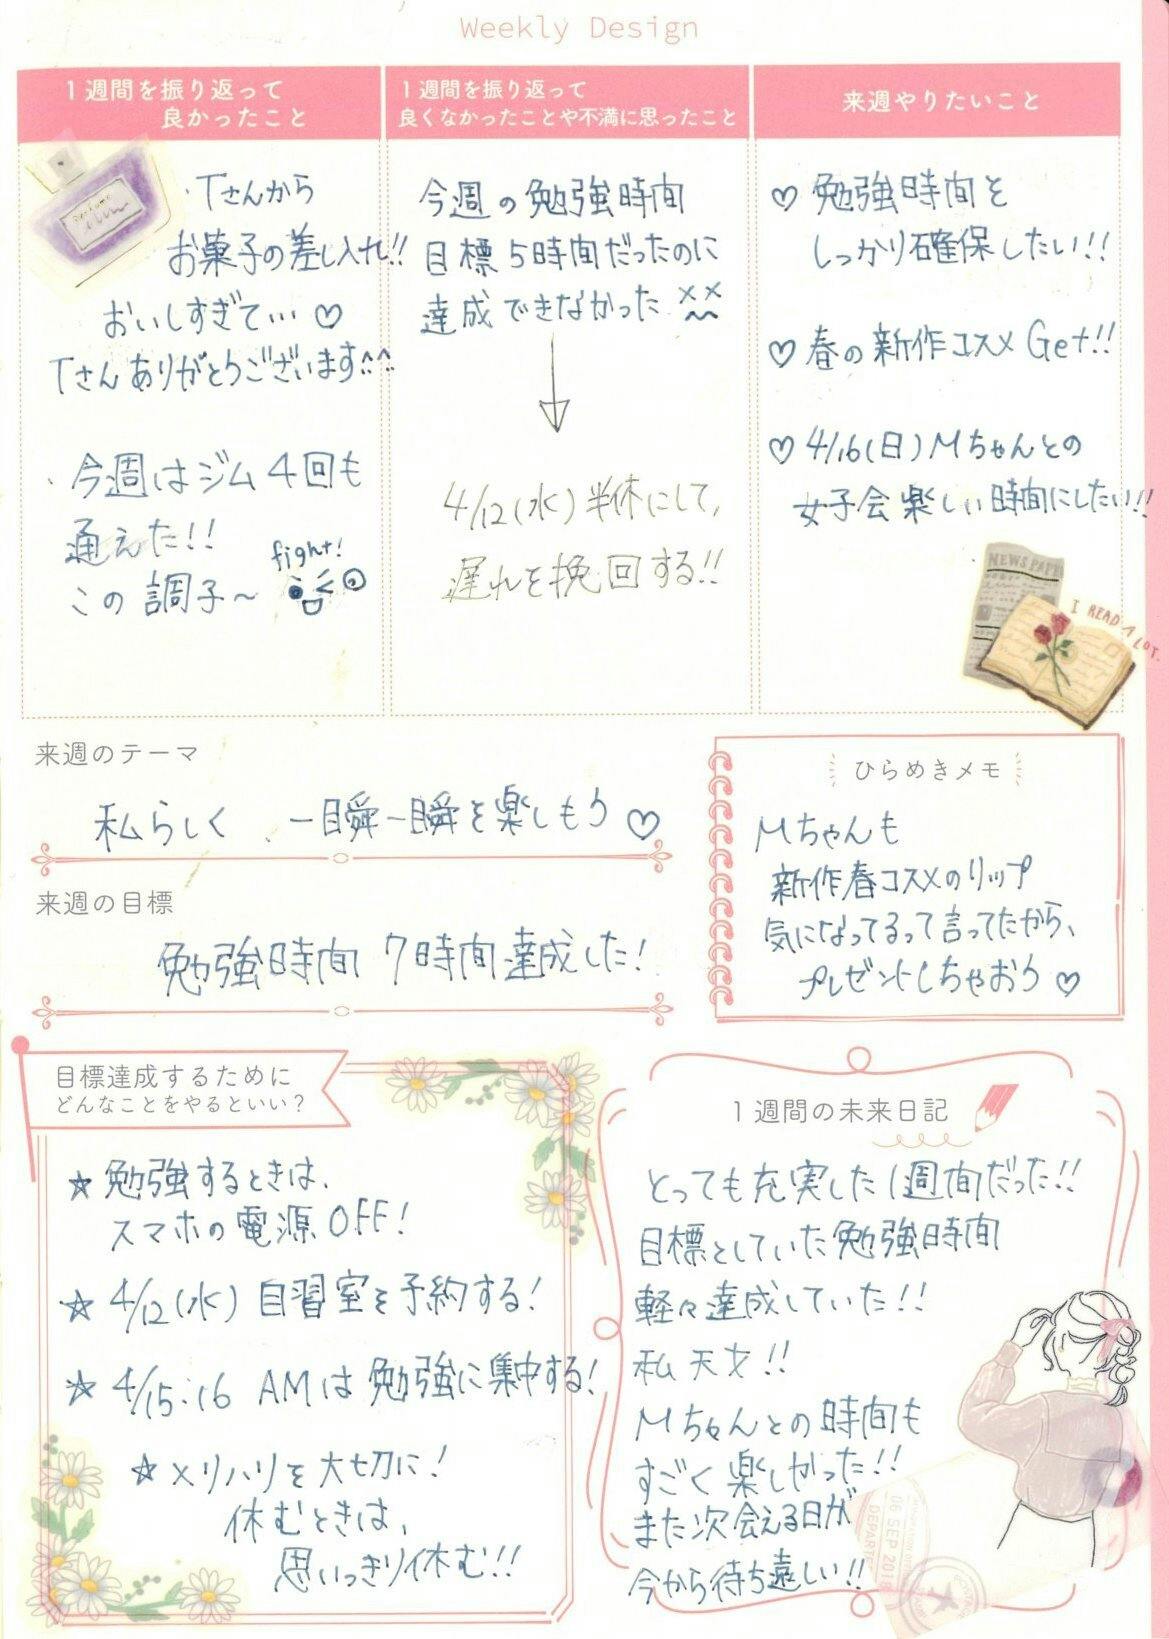 Weekly Design
1週間を振り返って
良かったこと
・Tさんから
お菓子の差し入れ!!
おいしすぎて… ♡
Tさんありがとうございます^^
・今週はジム4回も
通えた!!
この調子〜
fight!
1週間を振り返って
良くなかったことや不満に思ったこと
今週の勉強時間
目標5時間だったのに
達成できなかった
4/12(水)半休にして,
遅れを挽回する!!
来週やりたいこと
♡ 勉強時間を
しっかり確保したい!!
♡ 春の新作コスメ Get!!
♡ 4/16(日)Mちゃんとの
女子会楽しい時間にしたい!!
NEWS PAPE
I READ A LOT.
来週のテーマ
私らしく 一瞬一瞬を楽しもう♡
来週の目標
勉強時間 7時間達成した!
ひらめきメモ
Mちゃんも
新作春コスメのリップ
気になってるって言ってたから、
プレゼントしちゃおう♡
目標達成するために
どんなことをやるといい?
☆勉強するときは、
スマホの電源OFF!
☆ 4/12(水)自習室を予約する!
☆ 4/15.16 AMは勉強に集中する!
☆メリハリを大切に!
休むときは、
思いっきり休む!!
1週間の未来日記
とっても充実した1週間だった!!
目標としていた勉強時間
軽々達成していた!!
私天才!!
Mちゃんとの時間も
すごく楽しかった!!
また次会える日が
今から待ち遠しい!!
06 SEP 2018